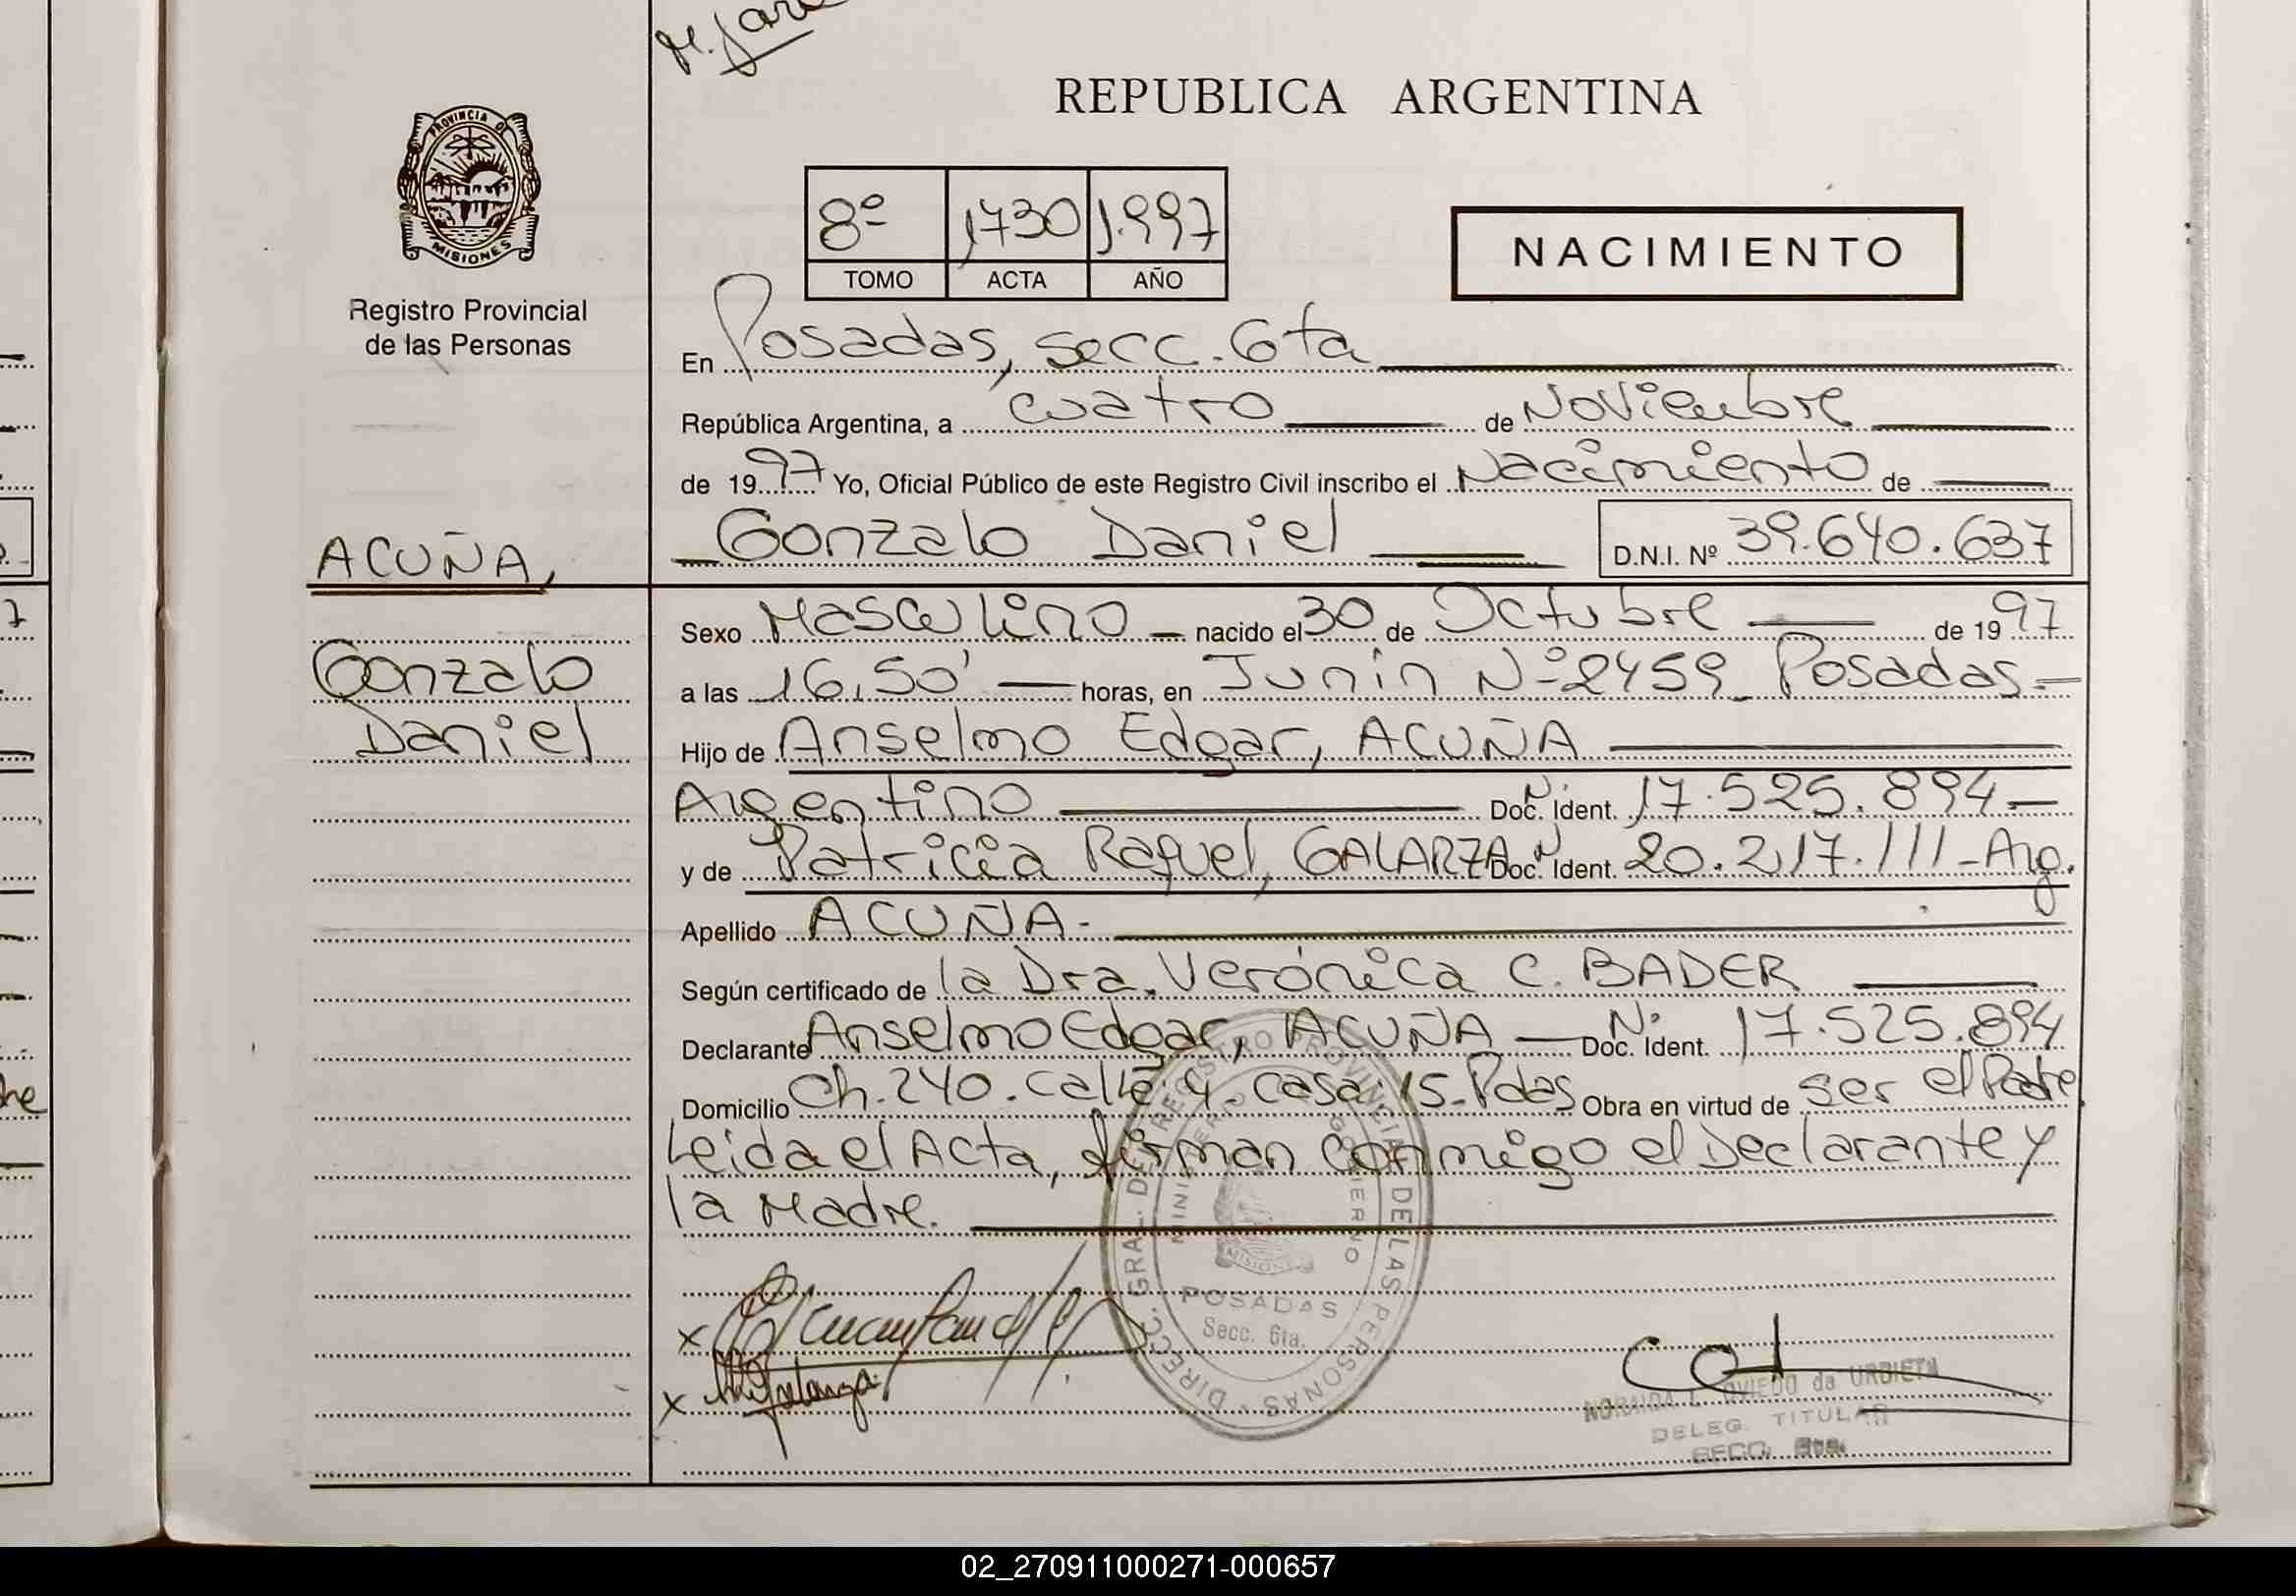 REPUBLICA ARGENTINA
PROVINCIA DE
MISIONES
Registro Provincial
de las Personas
8º 1730 1.997
TOMO ACTA AÑO
NACIMIENTO
En Posadas, secc. 6ta
República Argentina, a cuatro de Noviembre
de 1997 Yo, Oficial Público de este Registro Civil inscribo el Nacimiento de
Gonzalo Daniel D.N.I. Nº 39.640.637
ACUÑA,
Gonzalo
Daniel
Sexo Masculino nacido el 30 de Octubre de 1997
a las 16,50' horas, en Junín Nº 2459 Posadas
Hijo de Anselmo Edgar, ACUÑA
Argentino Doc. Ident. Nº 17.525.894
y de Patricia Raquel, GALARZA Doc. Ident. Nº 20.217.111 - Arg.
Apellido ACUÑA.
Según certificado de la Dra. Verónica C. BADER
Declarante Anselmo Edgar, ACUÑA Doc. Ident. Nº 17.525.894
Domicilio Ch. 240. calle: 4. casa: 15. Pdas Obra en virtud de ser el Padre
Leida el Acta, firman conmigo el Declarante y
la Madre.
DIRECC. GRAL. DEL REGISTRO PROVINCIAL DE LAS PERSONAS
MINISTERIO GOBIERNO
MISIONES
POSADAS
Secc. 6ta.
x
x
OVIEDO de URBIETA
DELEG. TITULAR
SECC. 6ta.
02_270911000271-000657